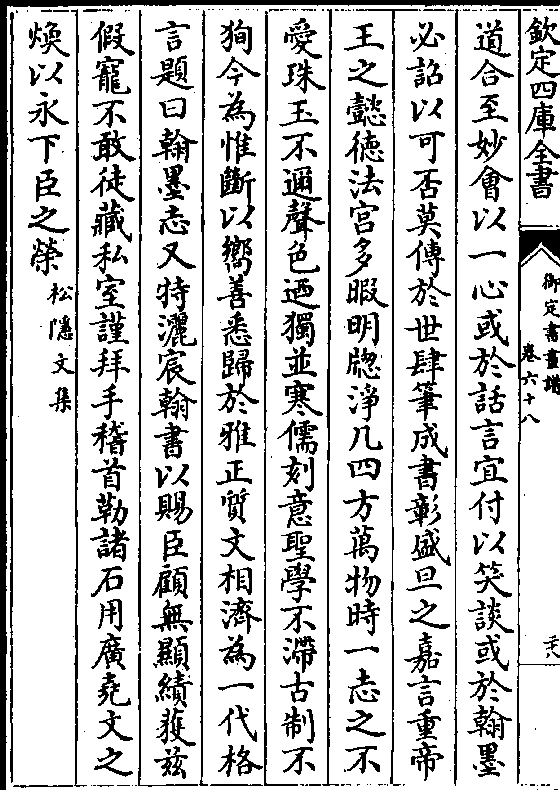 欽定四庫全書
御定書畫譜
卷六十八
道合至妙會以一心或於話言宜付以笑談或於翰墨
必詔以可否莫傳於世肆筆成書彰盛旦之嘉言重帝
王之懿徳法宫多暇明牕淨几四方萬物時一志之不
愛珠玉不邇聲色迺獨並寒儒刻意聖學不滯古制不
狥今為惟斷以嚮善悉歸於雅正質文相濟為一代格
言題曰翰墨志又特灑宸翰書以賜臣顧無顯績獲兹
假寵不敢徒藏私室謹拜手稽首勒諸石用廣堯文之
煥以永下臣之榮松隱文集